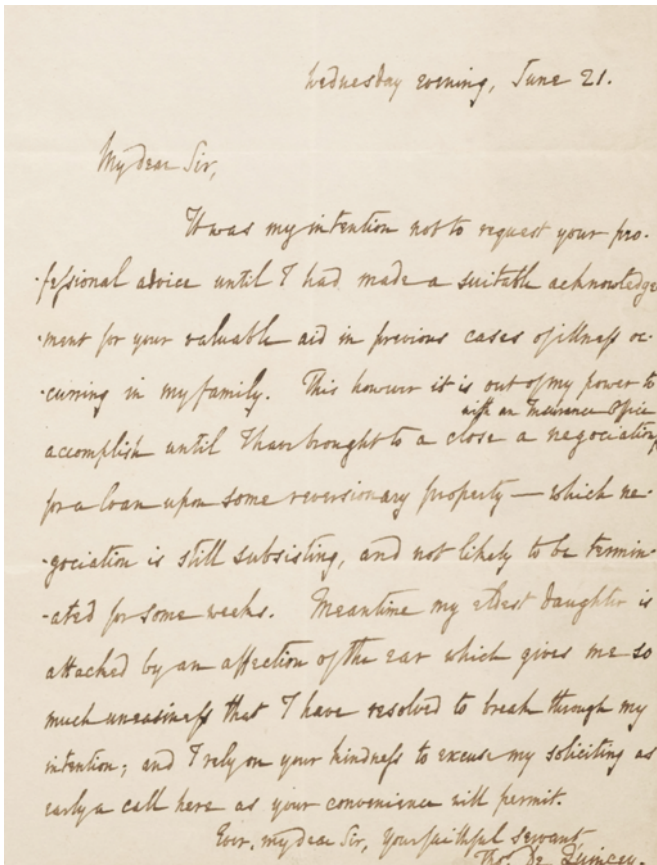 Wednesday evening, June 21.
My dear Sir,
It was my intention not to request your pro-
-fessional advice until I had made a suitable acknowledge
-ment for your valuable aid in previous cases of illness oc-
-curring in my family. This however it is out of my power to
with an Insurance Office
accomplish until I have brought to a close a negociation,
for a loan upon some reversionary property — which ne-
-gociation is still subsisting, and not likely to be termin-
-ated for some weeks. Meantime my eldest daughter is
attacked by an affection of the ear which gives me so
much uneasiness that I have resolved to break through my
intention; and I rely on your kindness to excuse my soliciting as
early a call here as your convenience will permit.
Ever, my dear Sir, your faithful servant,
Thos. De Quincey.